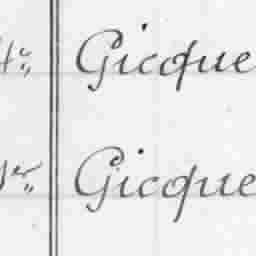 Gicque
Gicque